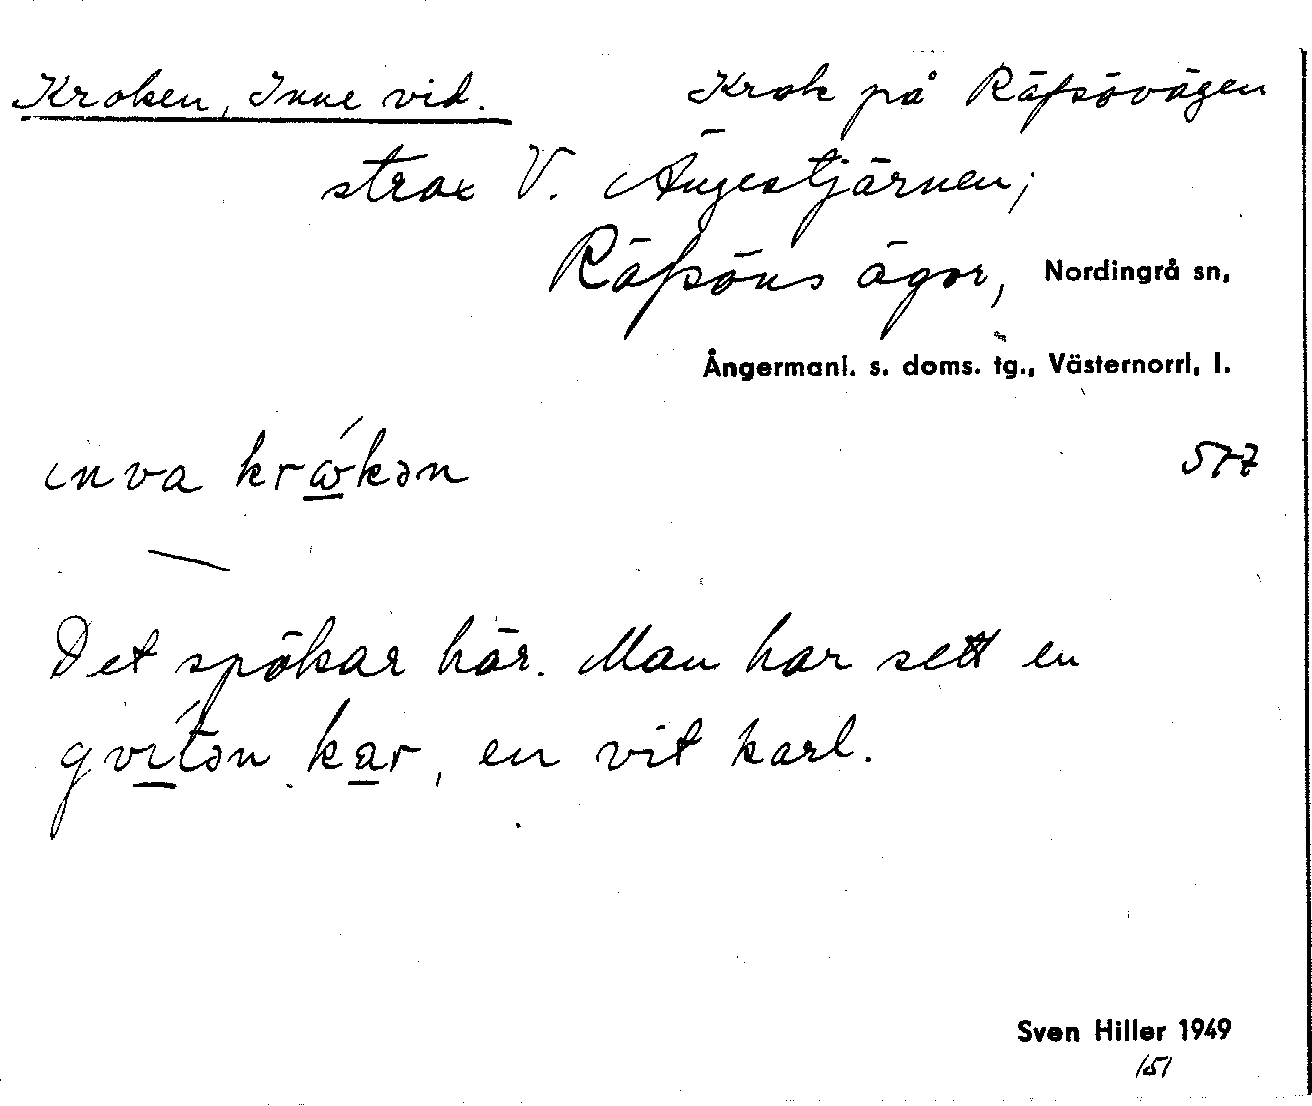 Kroken, Inne vid. Krok på Räfsövägen
strax V. Ängestjärnen;
Räfsöns ägor, Nordingrå sn,
Ångermanl. s. doms. tg., Västernorrl, l.
inva krɷ́kən 517
Det spökar här. Man har sett en
gvítən kar, en vit karl.
Sven Hiller 1949
151